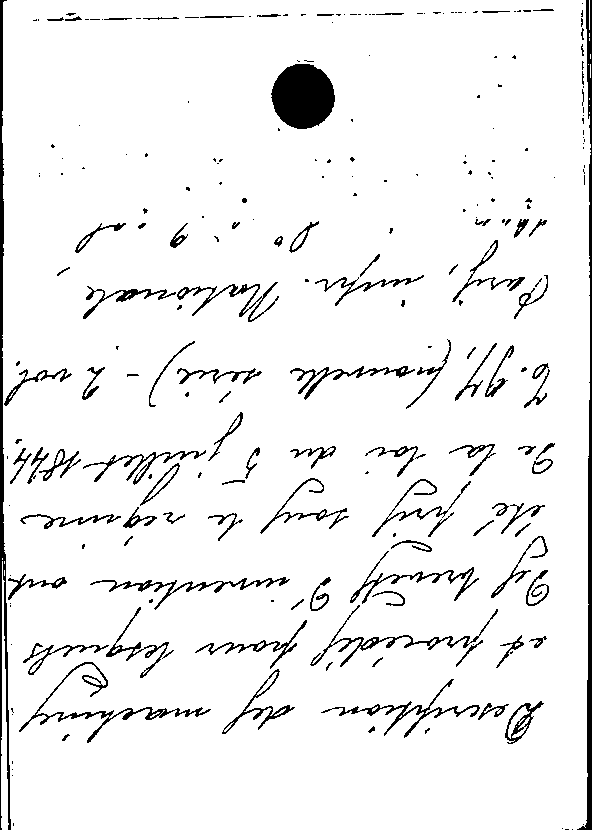 Description des machines
et procédés pour lesquels
Des brevets D'invention ont
été pris sous le régime
De la loi du 5 juillet 1844.
(nouvelle série) - 2 vol.
Paris, impr. Nationale,